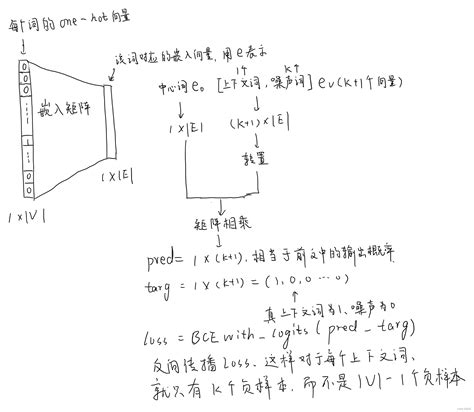 每个词的 one-hot 向量
该词对应的嵌入向量, 用e表示
嵌入矩阵
0
0
0
1
0
0
1×|V|
1×|E|
1个
K个
中心词 e。 [上下文词, 噪声词] ev(k+1个向量)
1×|E|
(k+1)×|E|
转置
矩阵相乘
pred= 1×(k+1), 相当于前文中的输出概率
targ = 1×(k+1) = (1, 0, 0 ··· 0)
真上下文词为1, 噪声为0
loss = BCE with_logits (pred - targ)
反向传播loss. 这样对于每个上下文词,
就只有 K个负样本, 而不是 |V|-1 个负样本